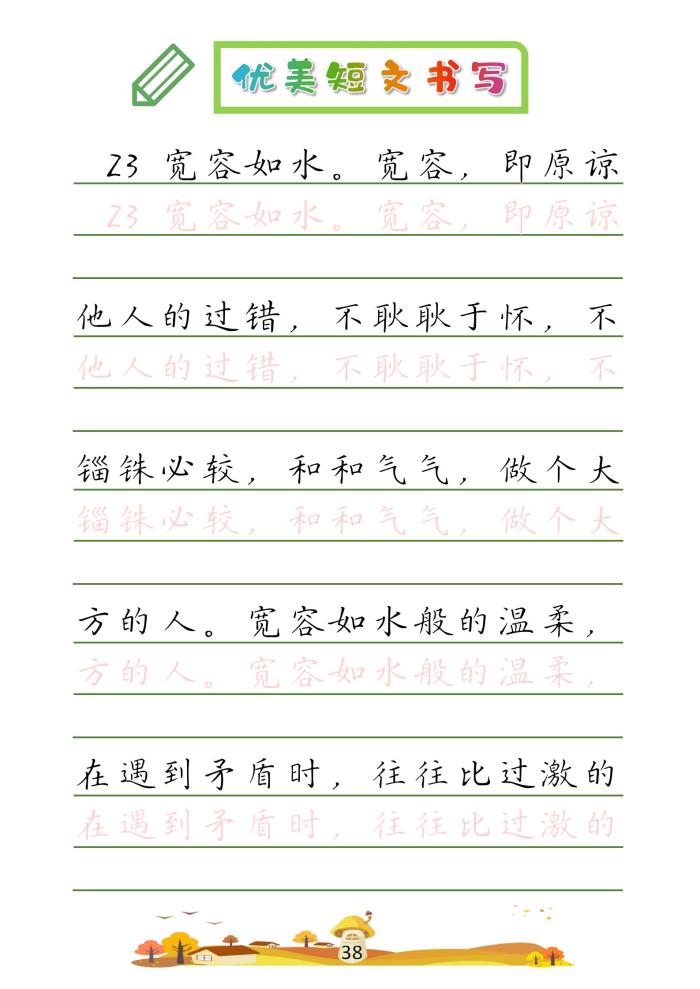 优美短文书写
23 宽容如水。宽容，即原谅
23 宽容如水。宽容，即原谅
他人的过错，不耿耿于怀，不
他人的过错，不耿耿于怀，不
锱铢必较，和和气气，做个大
锱铢必较，和和气气，做个大
方的人。宽容如水般的温柔，
方的人。宽容如水般的温柔，
在遇到矛盾时，往往比过激的
在遇到矛盾时，往往比过激的
38